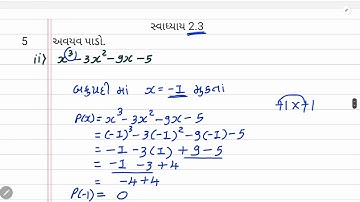 સ્વાધ્યાય 2.3
5 અવયવ પાડો.
ii) x³ - 3x² - 9x - 5
બહુપદી માં x = -1 મુકતા
+1x+1
P(x) = x³ - 3x² - 9x - 5
= (-1)³ - 3(-1)² - 9(-1) - 5
= -1 - 3(1) + 9 - 5
= -1 - 3 + 4
= -4 + 4
P(-1) = 0